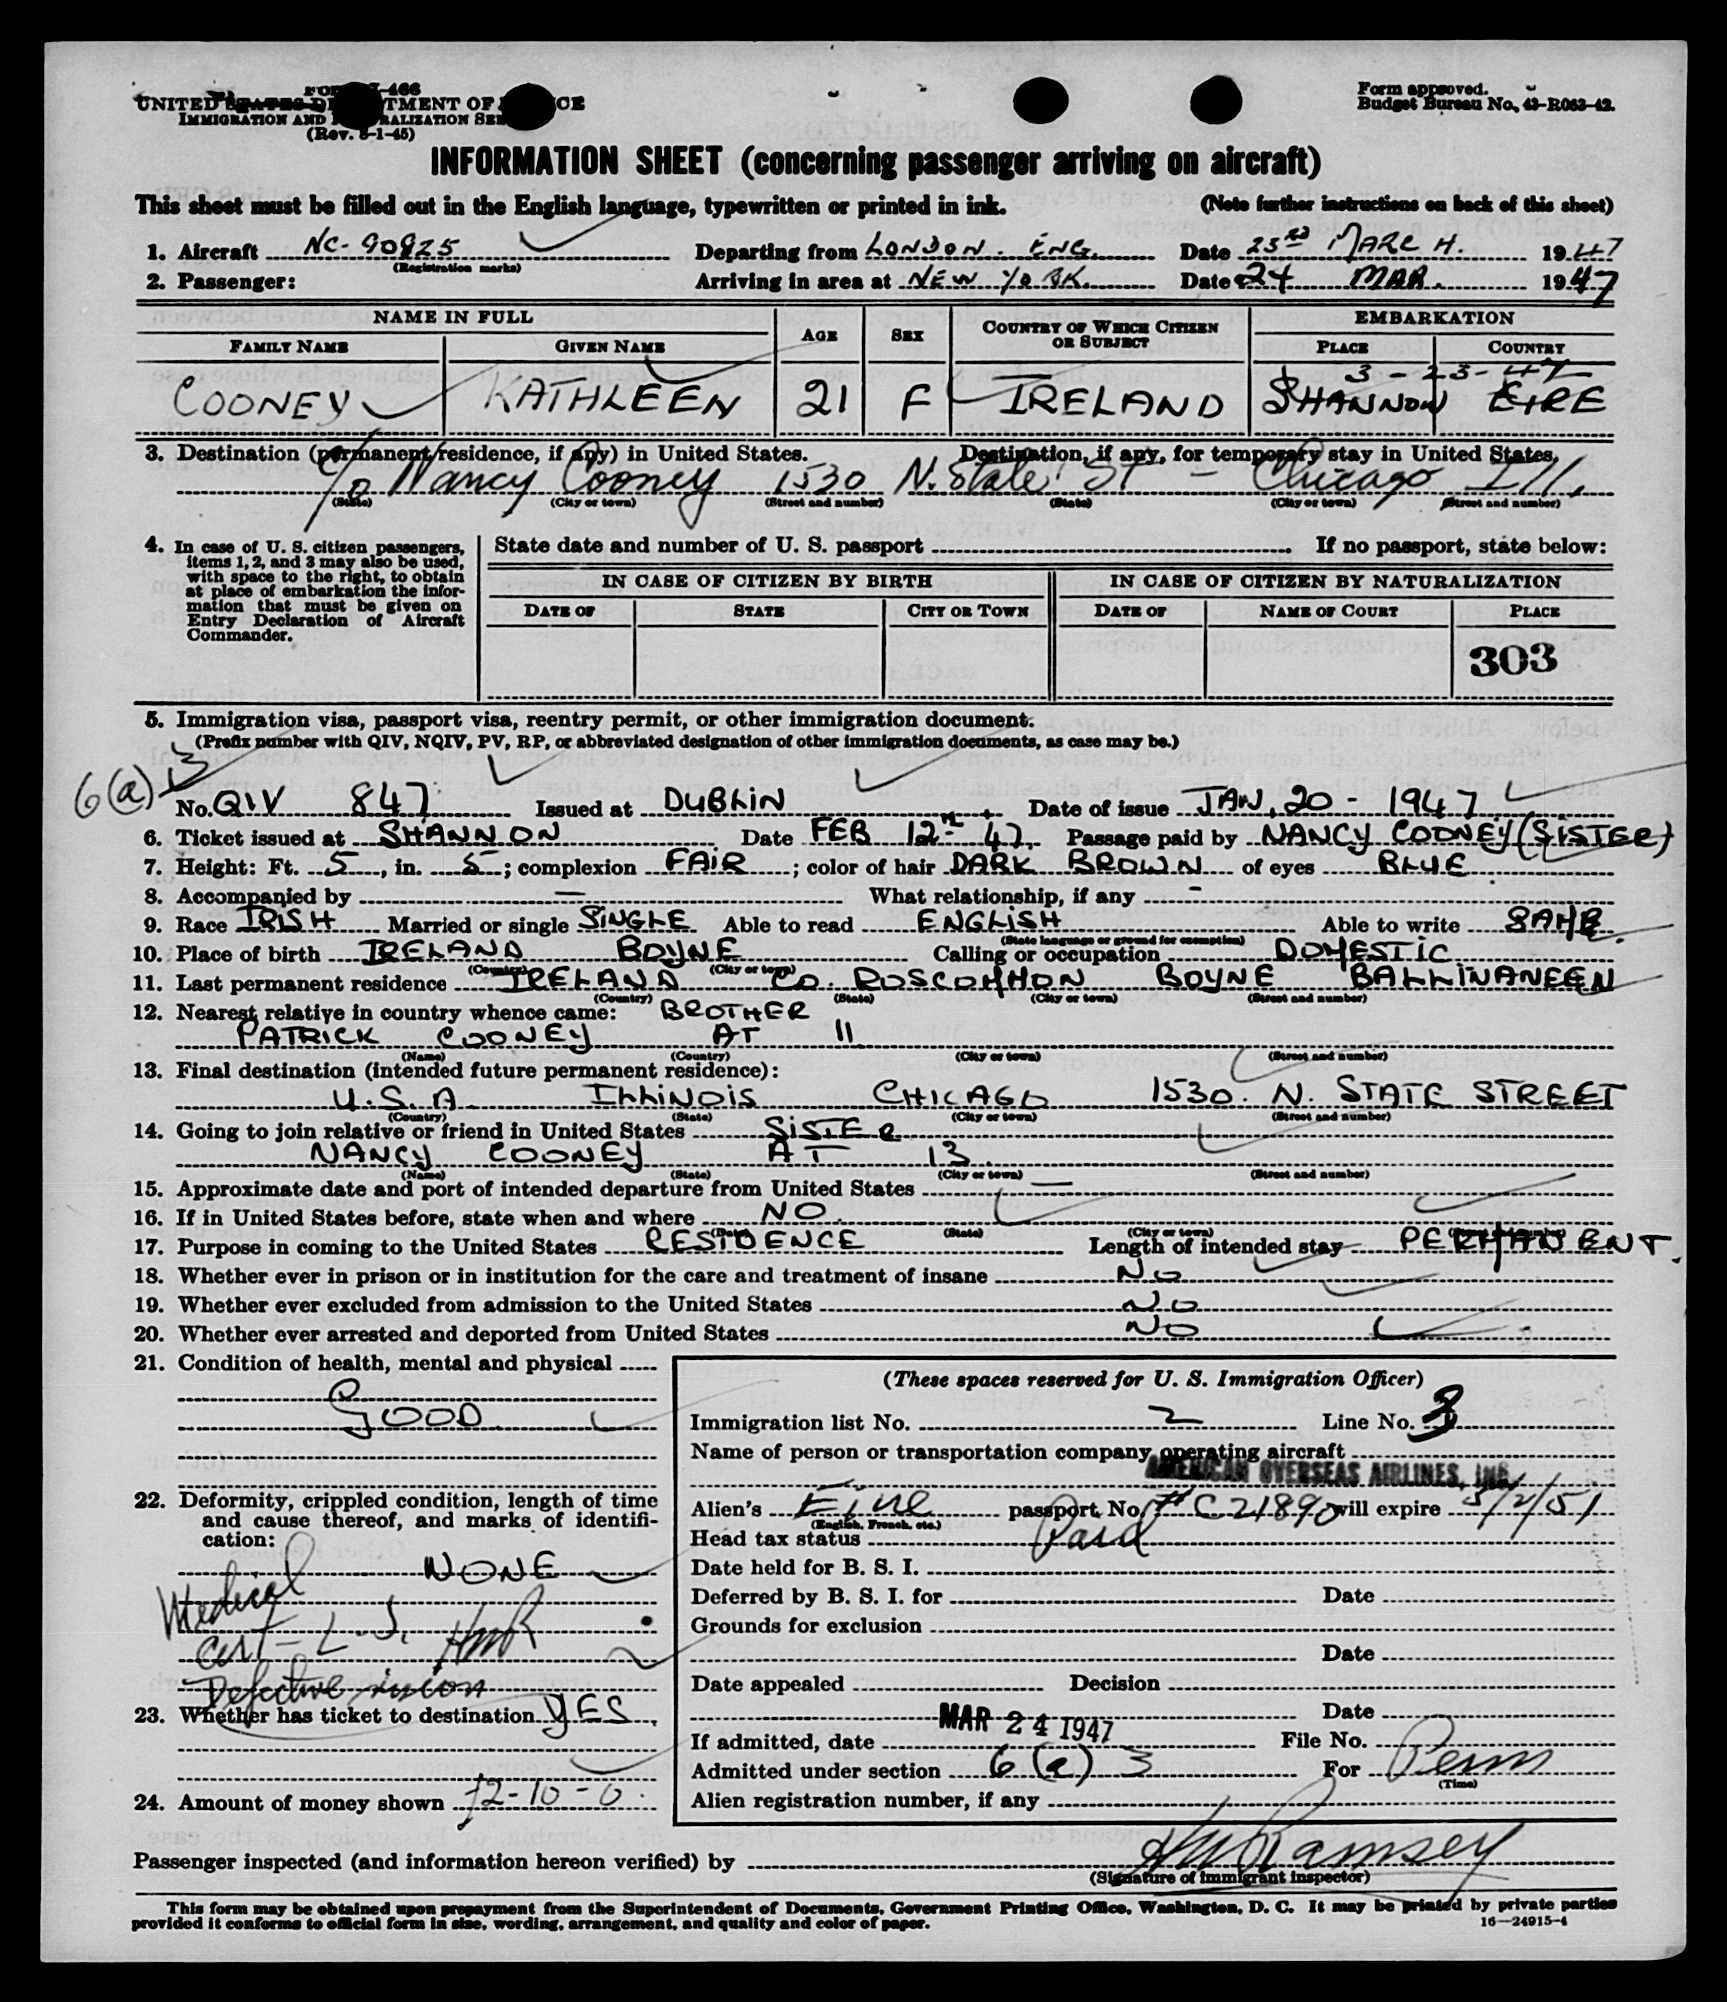 FORM I-466
UNITED STATES DEPARTMENT OF JUSTICE
IMMIGRATION AND NATURALIZATION SERVICE
(Rev. 5-1-45)
Form approved.
Budget Bureau No. 43-R063-42.
INFORMATION SHEET (concerning passenger arriving on aircraft)
This sheet must be filled out in the English language, typewritten or printed in ink. (Note further instructions on back of this sheet)
1. Aircraft NC-90925 (Registration marks) Departing from LONDON. ENG. Date 23RD MARCH. 1947
2. Passenger: Arriving in area at NEW YORK. Date 24 MAR. 1947
NAME IN FULL AGE SEX COUNTRY OF WHICH CITIZEN OR SUBJECT EMBARKATION
FAMILY NAME GIVEN NAME PLACE COUNTRY
3-23-47
COONEY KATHLEEN 21 F IRELAND SHANNON EIRE
3. Destination (permanent residence, if any) in United States. Destination, if any, for temporary stay in United States.
c/o Nancy Cooney 1530 N. State St - Chicago Ill.
(State) (City or town) (Street and number) (State) (City or town) (Street and number)
4. In case of U. S. citizen passengers, items 1, 2, and 3 may also be used, with space to the right, to obtain at place of embarkation the information that must be given on Entry Declaration of Aircraft Commander.
State date and number of U. S. passport If no passport, state below:
IN CASE OF CITIZEN BY BIRTH IN CASE OF CITIZEN BY NATURALIZATION
DATE OF STATE CITY OR TOWN DATE OF NAME OF COURT PLACE
303
5. Immigration visa, passport visa, reentry permit, or other immigration document.
(Prefix number with QIV, NQIV, PV, RP, or abbreviated designation of other immigration documents, as case may be.)
6(a)3
No. QIV 847 Issued at DUBLIN Date of issue JAN, 20 - 1947
6. Ticket issued at SHANNON Date FEB 12TH 47. Passage paid by NANCY COONEY (SISTER)
7. Height: Ft. 5, in. 5; complexion FAIR; color of hair DARK BROWN of eyes BLUE
8. Accompanied by — What relationship, if any -
9. Race IRISH Married or single SINGLE Able to read ENGLISH Able to write SAME.
(State language or ground for exemption)
10. Place of birth IRELAND BOYNE Calling or occupation DOMESTIC
(Country) (City or town)
11. Last permanent residence IRELAND CO. ROSCOMMON BOYNE BALLINANEEN
(Country) (State) (City or town) (Street and number)
12. Nearest relative in country whence came: BROTHER
PATRICK COONEY AT 11
(Name) (Country) (City or town) (Street and number)
13. Final destination (intended future permanent residence):
U.S.A. ILLINOIS CHICAGO 1530. N. STATE STREET
(Country) (State) (City or town) (Street and number)
14. Going to join relative or friend in United States SISTER
NANCY COONEY AT 13.
(Name) (State) (City or town) (Street and number)
15. Approximate date and port of intended departure from United States —
16. If in United States before, state when and where NO.
(Date) (State) (City or town) (Street and number)
17. Purpose in coming to the United States RESIDENCE Length of intended stay PERMANENT.
18. Whether ever in prison or in institution for the care and treatment of insane NO
19. Whether ever excluded from admission to the United States NO
20. Whether ever arrested and deported from United States NO
21. Condition of health, mental and physical
GOOD
22. Deformity, crippled condition, length of time and cause thereof, and marks of identification:
NONE
Medical
cert - L.S. HMR
Defective vision
23. Whether has ticket to destination YES.
24. Amount of money shown £2-10-0.
(These spaces reserved for U. S. Immigration Officer)
Immigration list No. 2 Line No. 3
Name of person or transportation company operating aircraft
AMERICAN OVERSEAS AIRLINES, INC.
Alien's Eire passport No. # C21890 will expire 3/2/51
(English, French, etc.)
Head tax status Paid
Date held for B. S. I.
Deferred by B. S. I. for Date
Grounds for exclusion
Date
Date appealed Decision
Date
If admitted, date MAR 24 1947 File No.
Admitted under section 6(a)3 For Perm
(Time)
Alien registration number, if any
Passenger inspected (and information hereon verified) by HM Ramsey
(Signature of immigrant inspector)
This form may be obtained upon prepayment from the Superintendent of Documents, Government Printing Office, Washington, D. C. It may be printed by private parties
provided it conforms to official form in size, wording, arrangement, and quality and color of paper. 16—24915-4